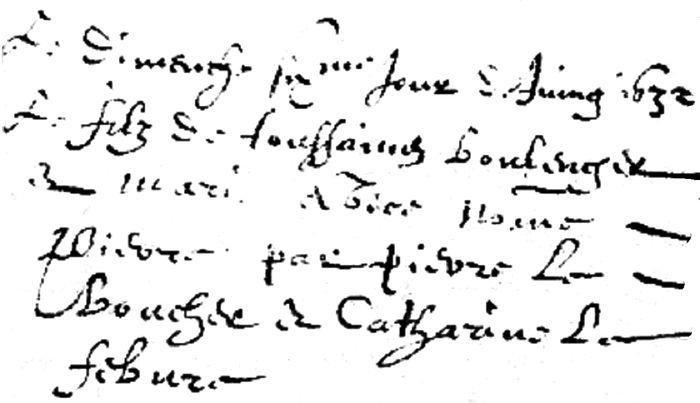 Le dimenche six^me jour de Juing 1632
Le filz de toussaines boulenger
et mari nomé
Pierre par pierre Le
boucher et Catharine Le
febure